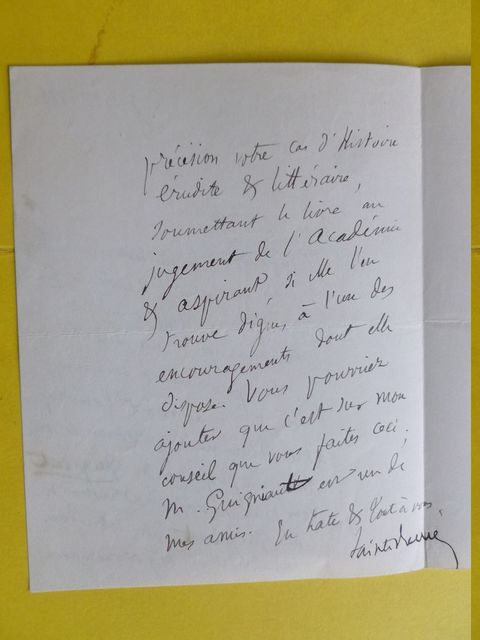 précision votre cas d'histoire
érudite & littéraire,
soumettant le livre au
jugement de l'Académie
& aspirant, si elle l'en
trouve digne, à l'un des
encouragements dont elle
dispose. Vous pourriez
ajouter que c'est sur mon
conseil que vous faites ceci.
M. Guigniault est un de
mes amis. En hâte & tout à vous.
Sainte-Beuve